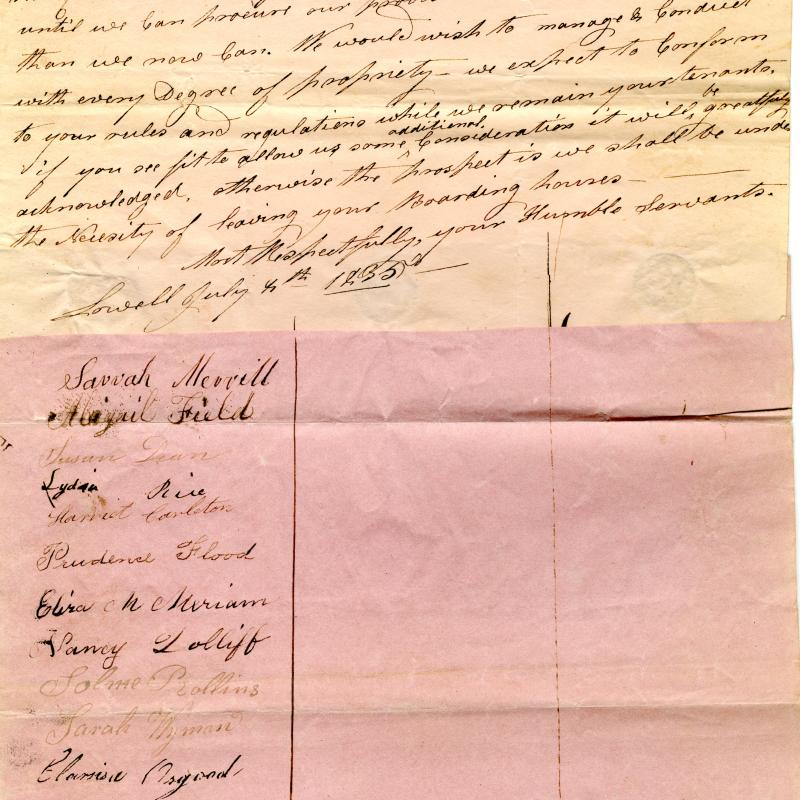 until we can procure our
than we now can. We would wish to manage & Conduct
with every Degree of propriety - we expect to Conform
to your rules and regulations while we remain your tenants.
if you see fit to allow us some additional Consideration it will be greatfully
acknowledged, otherwise the prospect is we shall be under
the Necesity of leaving your Boarding houses -
Most Respectfully, your Humble Servants.
Lowell July 4th 1835
Sarrah Merrill
Abigail Field
Susan Dean
Lydia Rice
Harriet Carleton
Prudence Flood
Eliza M Meriam
Nancy Dolliff
Rollins
Sarah Wyman
Clarrisa Osgood